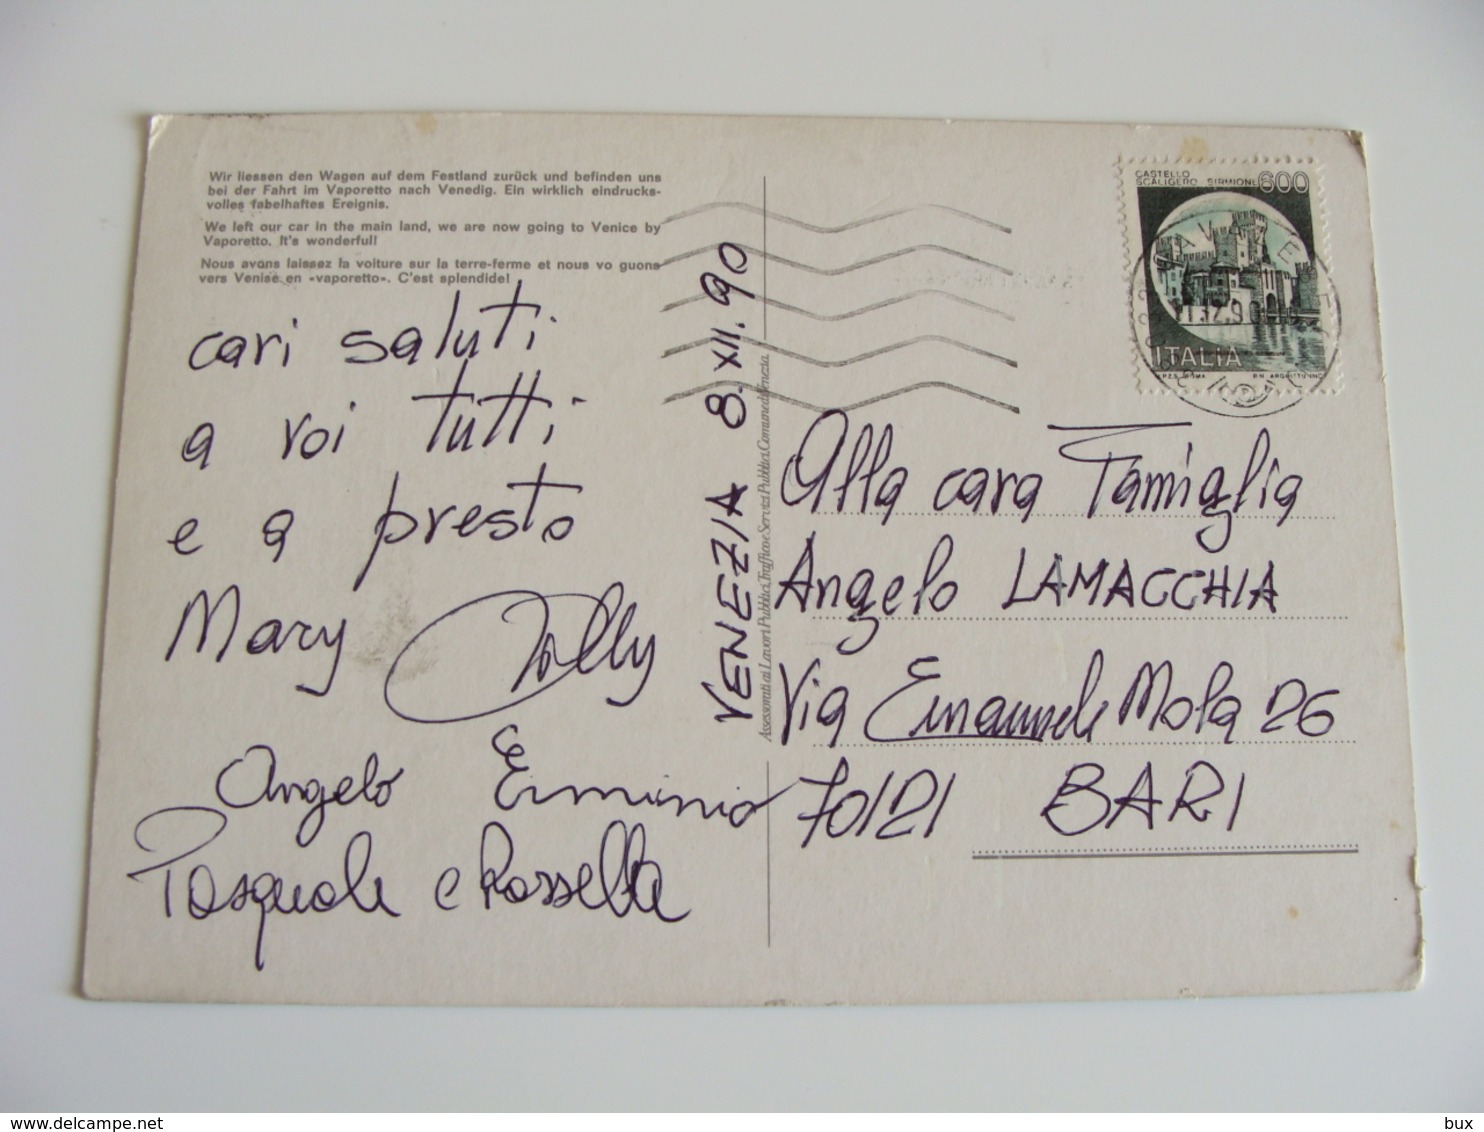 Wir liessen den Wagen auf dem Festland zurück und befinden uns
bei der Fahrt im Vaporetto nach Venedig. Ein wirklich eindrucks-
volles fabelhaftes Ereignis.
We left our car in the main land, we are now going to Venice by
Vaporetto. It's wonderful!
Nous avons laissez la voiture sur la terre-ferme et nous vo guons
vers Venise en «vaporetto». C'est splendide!
cari saluti
a voi tutti
e a presto
Mary
Angelo Erminio
Pasquale e Rossella
VENEZIA 8.XII.90
Assessorati ai Lavori Pubblici, Traffico e Servizi Pubblici. Comune di Venezia.
CASTELLO
SCALIGERO SIRMIONE 600
ITALIA
I.P.Z.S. ROMA
Alla cara Famiglia
Angelo LAMACCHIA
Via Emanuele Mola 26
70121 BARI
bux